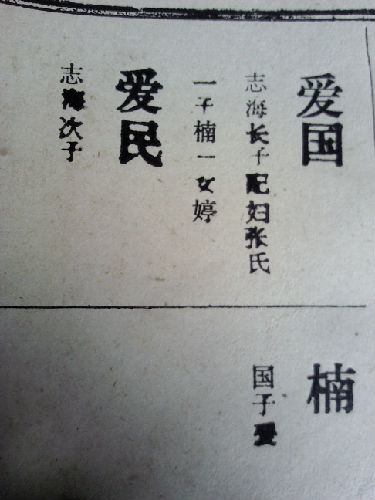 爱国
志海长子配妇张氏
一子楠一女婷
爱民
志海次子
楠
国子爱